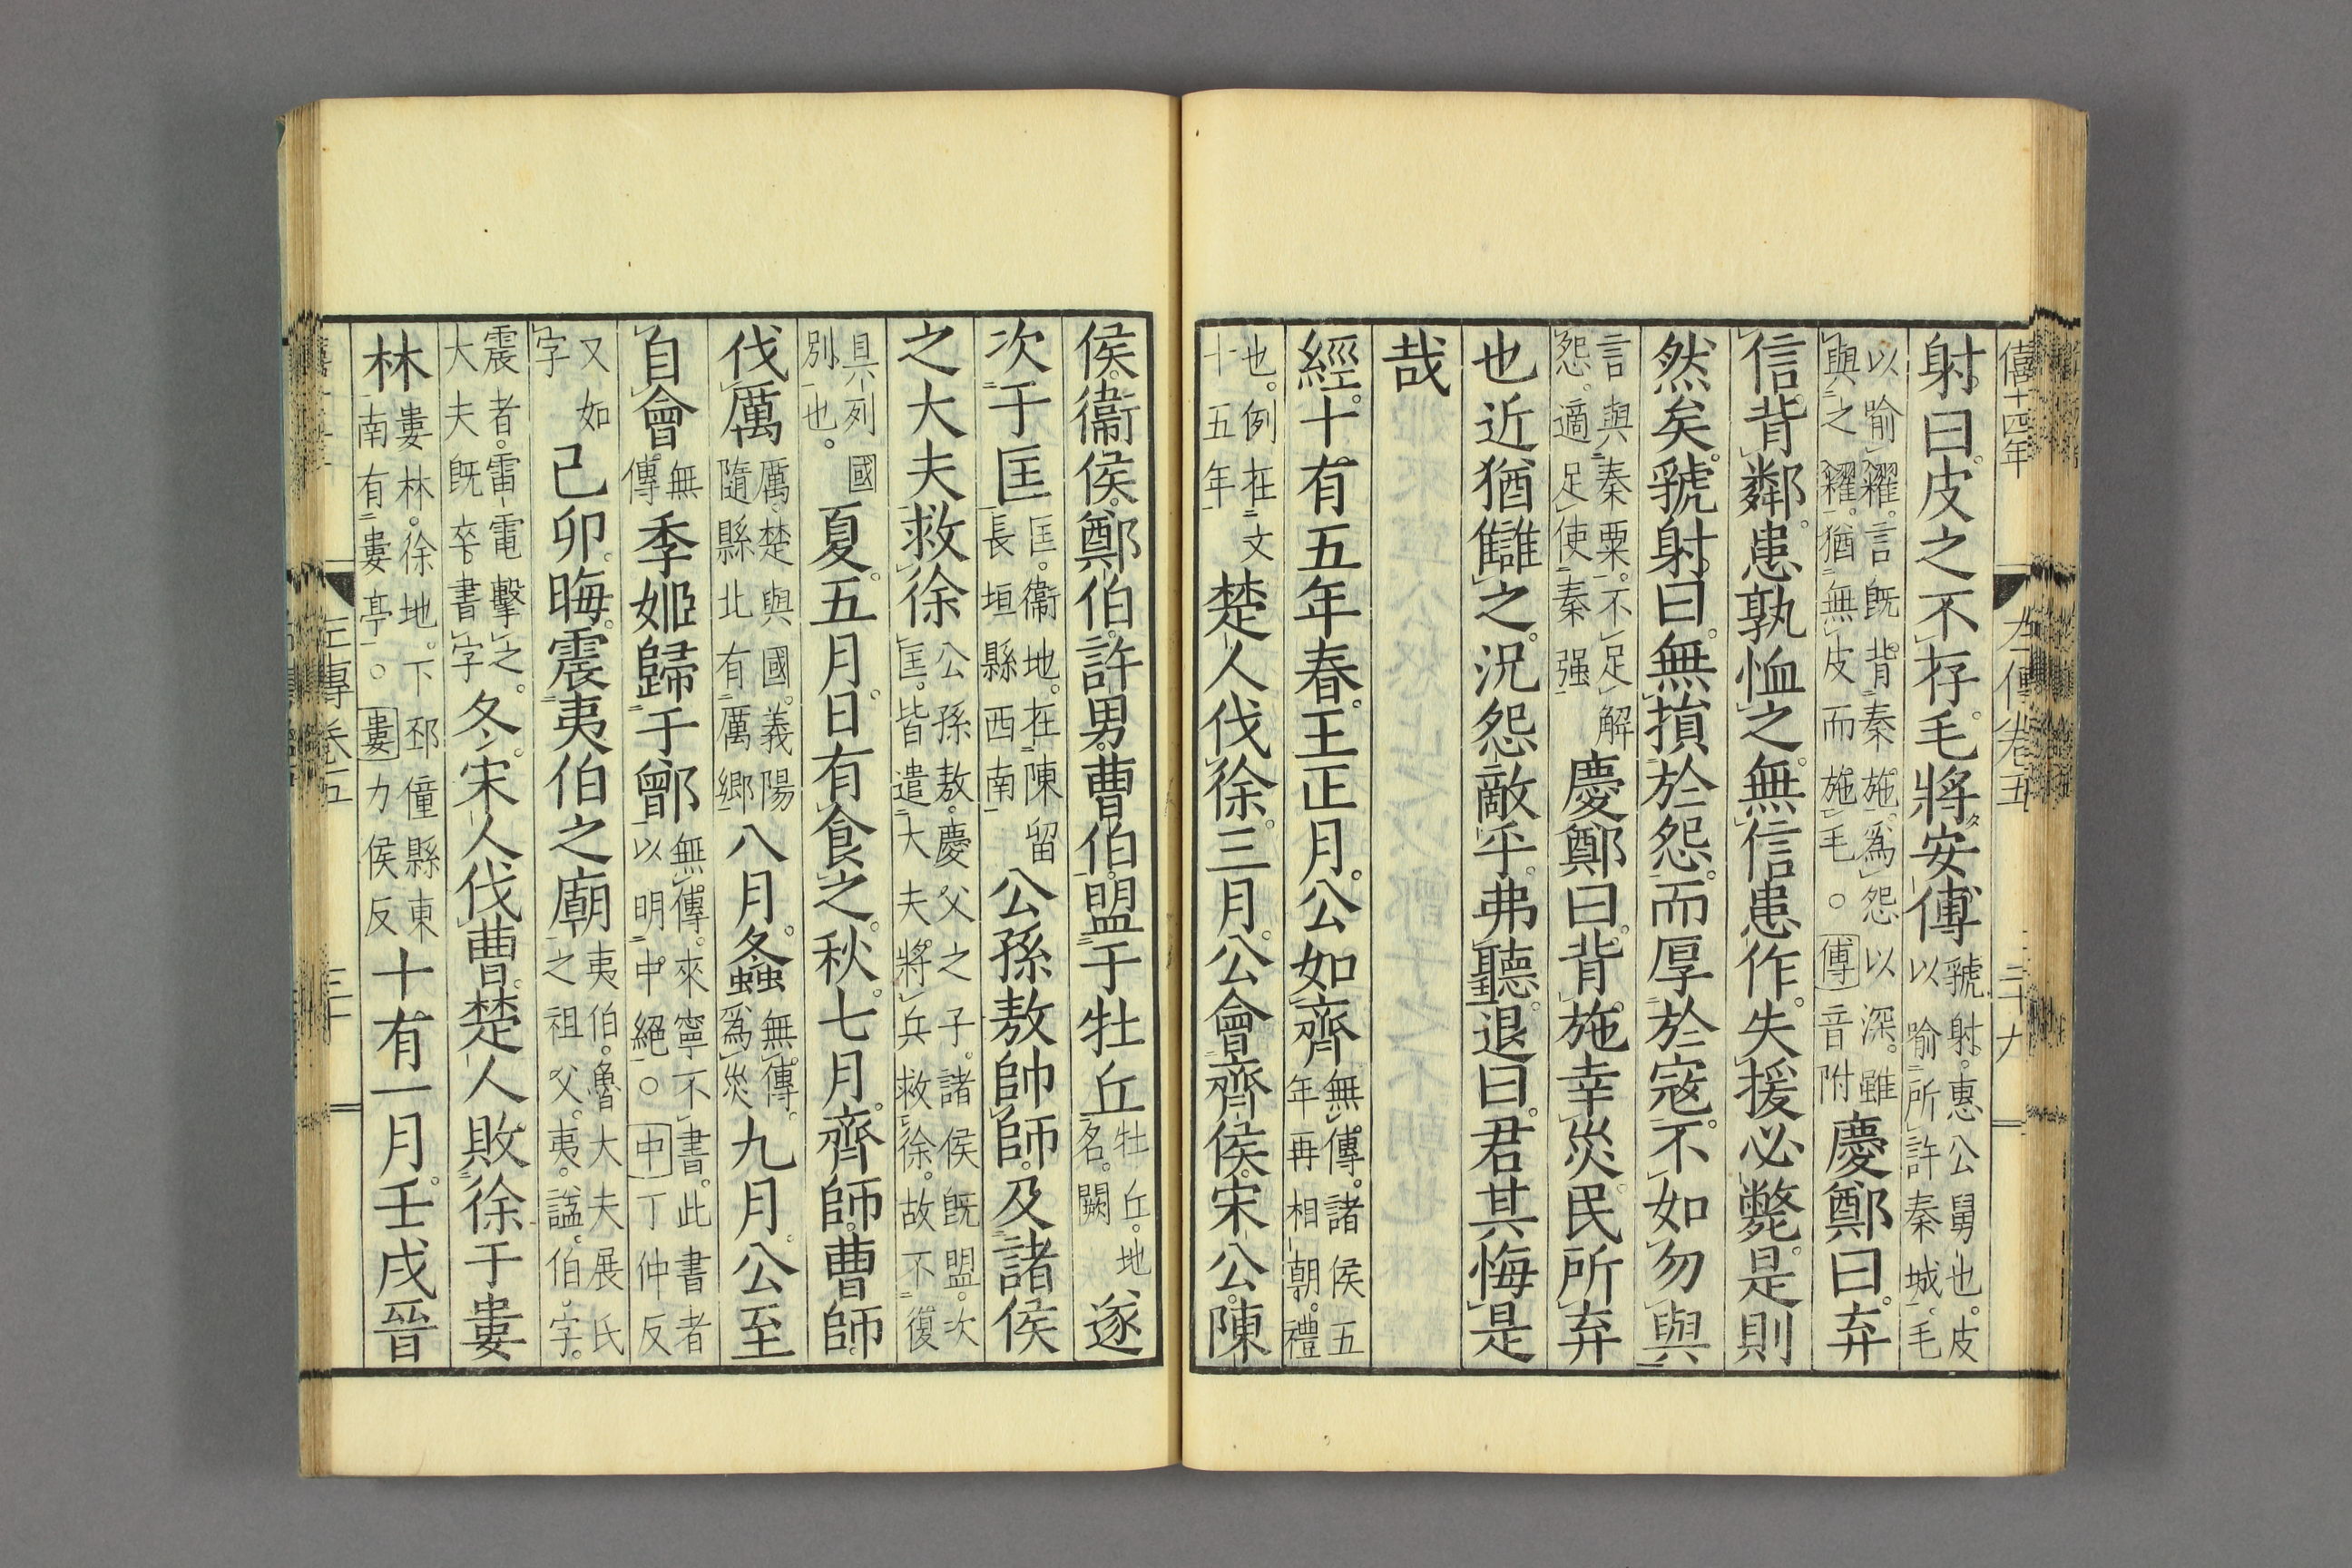 僖十四年 左傳卷五 三十九
射曰皮之不存毛將安傅虢射惠公舅也皮以喻所許秦城毛
以喻糴言既背秦施爲怨以深雖與之糴猶無皮而施毛○傅音附慶鄭曰弃
信背鄰患孰恤之無信患作失援必斃是則
然矣虢射曰無損於怨而厚於寇不如勿與
言與秦粟不足解怨適足使秦强慶鄭曰背施幸災民所弃
也近猶讎之況怨敵乎弗聽退曰君其悔是
哉
經十有五年春王正月公如齊無傳諸侯五年再相朝禮
也例在文十五年楚人伐徐三月公會齊侯宋公陳
侯衞侯鄭伯許男曹伯盟于牡丘牡丘地名闕遂
次于匡匡衞地在陳留長垣縣西南公孫敖帥師及諸侯
之大夫救徐公孫敖慶父之子諸侯既盟次匡皆遣大夫將兵救徐故不復
具列國別也夏五月日有食之秋七月齊師曹師
伐厲厲楚與國義陽隨縣北有厲鄉八月螽無傳爲災九月公至
自會無傳季姬歸于鄫無傳來寧不書此書者以明中絶○中丁仲反
又如字己卯晦震夷伯之廟夷伯魯大夫展氏之祖父夷謚伯字
震者雷電擊之大夫既卒書字冬宋人伐曹楚人敗徐于婁
林婁林徐地下邳僮縣東南有婁亭○婁力侯反十有一月壬戌晉
左傳卷五